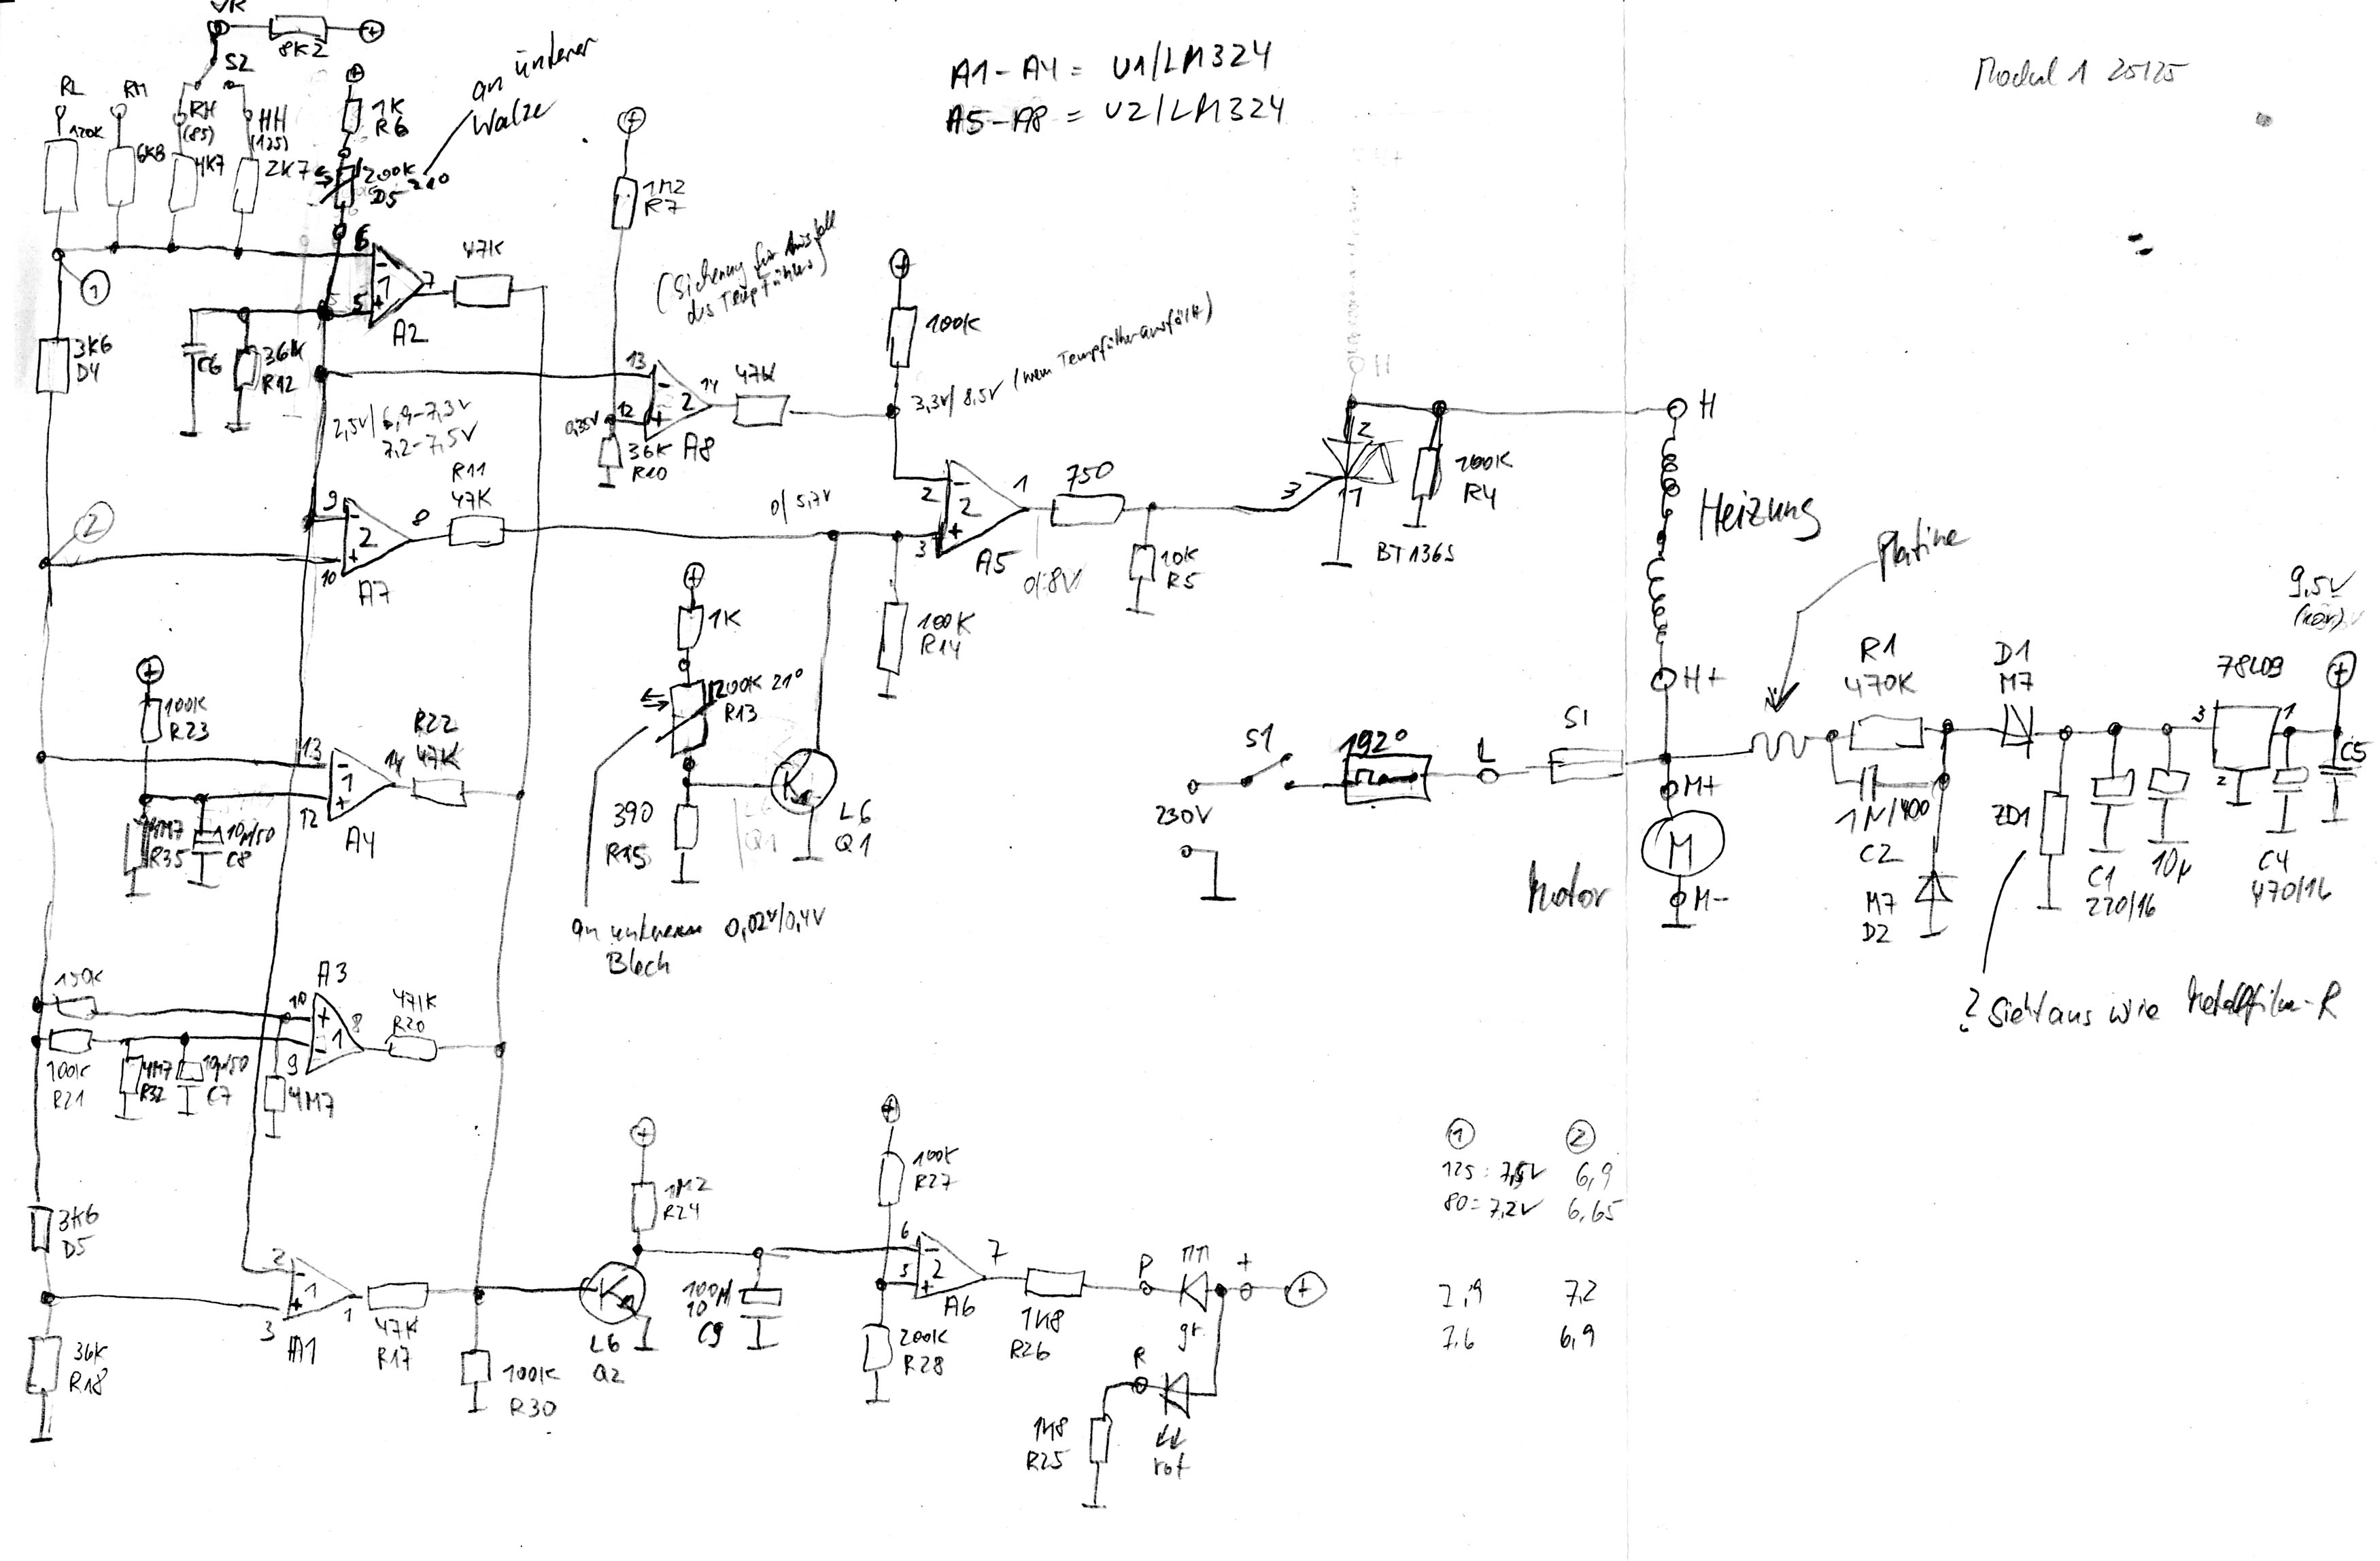 VR
8K2
S2
RL
RM
RH
(85)
HH
(125)
120K
6K8
4K7
2K7
1K
R6
200K
D5
21°
an unterer
Walze
A1-A4 = U1/LM324
A5-A8 = U2/LM324
Modul 1 25125
1M2
R7
6
5
1
7
A2
47K
1
3K6
D4
C6
36K
R12
2,5V/6,9-7,3V
7,2-7,5V
(Sicherung für Ausfall
des Tempfühlers)
13
12
2
14
A8
47K
0,35V
36K
R10
100K
3,3V/8,5V (wenn Tempfühler ausfällt)
R11
47K
9
10
2
8
A7
2
0/5,7V
2
3
2
1
A5
0/8V
750
10K
R5
3
2
1
BT136S
200K
R4
H
H
Heizung
H+
100K
R14
1K
200K 21°
R13
390
R15
L6
Q1
an unterem
Blech
0,02V/0,4V
100K
R23
4M7
R35
10µ/50
C8
13
12
1
14
A4
R22
47K
S1
230V
192°
L
SI
M+
M
M-
Motor
Platine
R1
470K
1µ/400
C2
D1
M7
M7
D2
ZD1
C1
220/16
10µ
78L09
3
1
2
C4
470/16
C5
9,5V
? Sieht aus wie Metallfilm-R
150K
100K
R21
4M7
R32
10µ/50
C7
10
9
1
8
A3
4M7
47K
R20
3K6
D5
36K
R18
2
3
1
1
A1
47K
R17
100K
R30
L6
Q2
1M2
R24
100µ
10
C9
100K
R27
200K
R28
6
5
2
7
A6
1K8
R26
P
gr.
+
R
rot
1K8
R25
1 2
125: 7,5V 6,9
80 = 7,2V 6,65
7,9 7,2
7,6 6,9